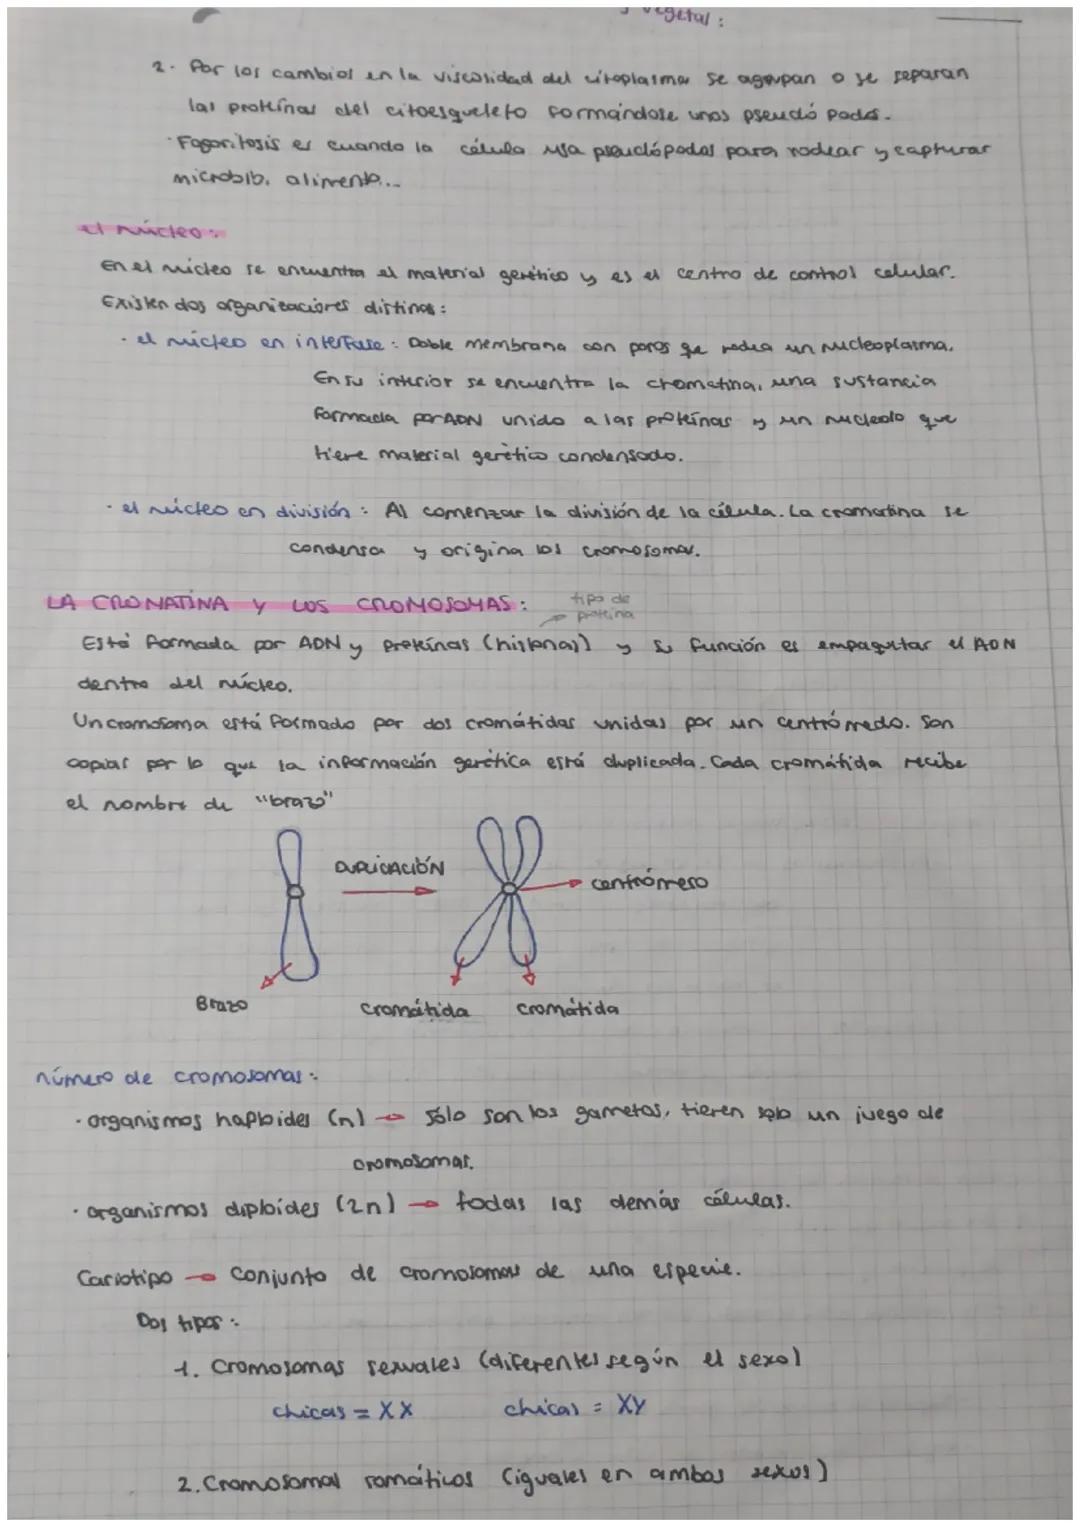 y vegetal:
2. Por los cambios en la viscosidad del citoplasma se agrupan o se separan
las proteínas del citoesqueleto formándose unos pseudó podos.
· Fagocitosis es cuando la célula usa pseudópodos para rodear y capturar
microbio, alimento...
el núcleo:
En el núcleo se encuentra el material genético y es el centro de control celular.
Existen dos organizaciones distinas:
· el núcleo en interfase: Doble membrana con poros que rodea un nucleoplasma.
En su interior se encuentra la cromatina, una sustancia
formada por ADN unido a las proteínas y un nucleolo que
tiene material genético condensado.
· el núcleo en división: Al comenzar la división de la célula. La cromatina se
condensa y origina los cromosomas.
LA CROMATINA Y LOS CROMOSOMAS:
tipo de
proteína
Está formada por ADN y proteínas (histonas) y su función es empaquetar el ADN
dentro del núcleo.
Un cromosoma está formado por dos cromátidas unidas por un centrómedo. Son
copias por lo que la información genética está duplicada. Cada cromátida recibe
el nombre de "brazo"
DUPLICACIÓN
centrómero
Brazo cromátida cromátida
número de cromosomas:
· organismos haploides (n) → sólo son los gametos, tienen solo un juego de
cromosomas.
· organismos diploídes (2n) → todas las demás células.
Cariotipo → conjunto de cromosomas de una especie.
Dos tipos:
1. Cromosomas sexuales (diferentes según el sexo)
chicas = XX chicas = XY
2. Cromosomas somáticos (iguales en ambos sexos)